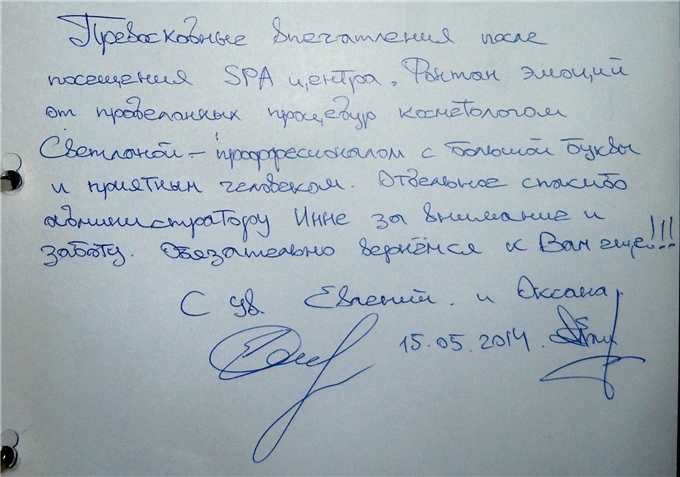 Превосходные впечатления после
посещения SPA центра. Фонтан эмоций
от проделанных процедур косметологом
Светланой – профессионалом с большой буквы
и приятным человеком. Отдельное спасибо
администратору Инне за внимание и
заботу. Обязательно вернёмся к Вам ещё!!!
С ув. Евгений. и Оксана.
15.05.2014.